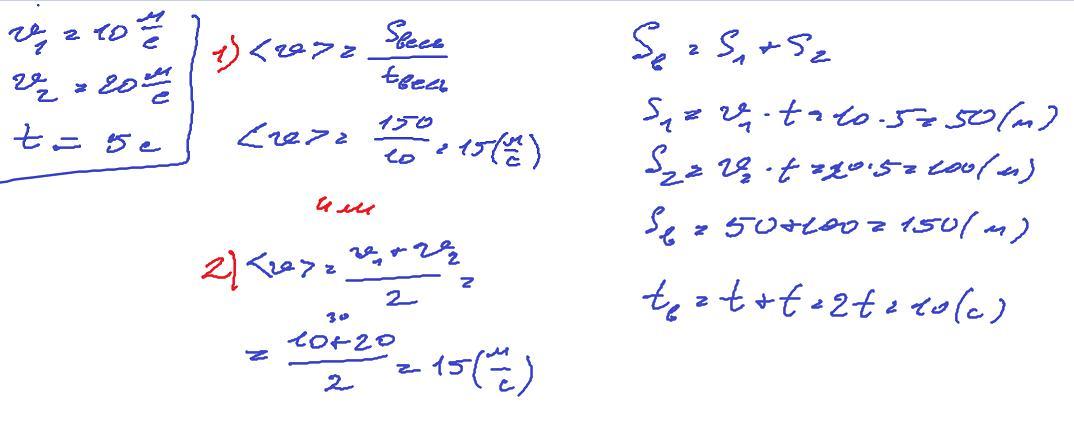 v₁ = 10 м/с
v₂ = 20 м/с
t = 5 с
1) <v> = Sвесь / tвесь
<v> = 150/10 = 15 (м/с)
или
2) <v> = (v₁ + v₂)/2 =
30
= (10+20)/2 = 15 (м/с)
Sв = S₁ + S₂
S₁ = v₁ · t = 10 · 5 = 50 (м)
S₂ = v₂ · t = 20 · 5 = 100 (м)
Sв = 50+100 = 150 (м)
tв = t + t = 2t = 10 (с)